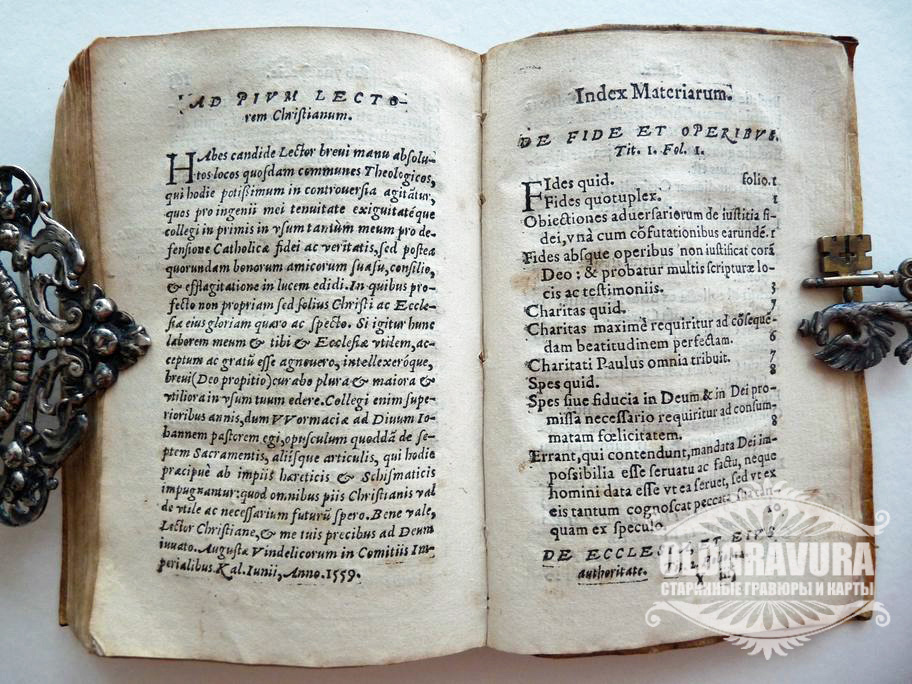 AD PIVM LECTO-
rem Christianum.
HAbes candide Lector brevi manu absolu-
tos locos quosdam communes Theologicos,
qui hodie potissimum in controversia agitãtur,
quos pro ingenii mei tenuitate exiguitatéque
collegi in primis in vsum tantùm meum pro de-
fensione Catholicæ fidei ac veritatis, sed postea
quorundam bonorum amicorum suasu, consilio,
& efflagitatione in lucem edidi. In quibus pro-
fecto non propriam sed solius Christi ac Eccle-
siæ eius gloriam quæro ac specto. Si igitur hunc
laborem meum & tibi & Ecclesiæ vtilem, ac-
ceptum ac gratũ esse agnovero, intellexeróque,
brevi (Deo propitio) curabo plura & maiora &
vtiliora in vsum tuum edere. Collegi enim supe-
rioribus annis, dum VVormaciæ ad Diuum Io-
hannem pastorem egi, opusculum quoddã de se-
ptem Sacramentis, aliisque articulis, qui hodie
præcipuè ab impiis hæreticis & Schismaticis
impugnantur: quod omnibus piis Christianis val
de vtile ac necessarium futurũ spero. Bene vale,
Lector Christiane, & me tuis precibus ad Deum
iuuato. Augustæ Vindelicorum in Comitiis Im-
perialibus Kal. Iunii, Anno. 1559.
Index Materiarum.
DE FIDE ET OPERIBVS.
Tit. 1. Fol. 1.
FIdes quid. folio. 1
Fides quotuplex. 1
Obiectiones aduersariorum de iustitia fi-
dei, vnà cum cõfutationibus earundẽ. 1
Fides absque operibus non iustificat corã
Deo: & probatur multis scripturæ lo-
cis ac testimoniis. 3
Charitas quid. 7
Charitas maximè requiritur ad cõseque-
dam beatitudinem perfectam. 6
Charitati Paulus omnia tribuit. 7
Spes quid. 8
Spes siue fiducia in Deum & in Dei pro-
missa necessario requiritur ad consum-
matam fœlicitatem. 8
Errant, qui contendunt, mandata Dei im-
possibilia esse seruatu ac factu, neque
homini data esse vt ea seruet, sed vt ex
eis tantum cognoscat peccata
quam ex speculo. 10
DE ECCLESIA ET EIVS
authoritate.
OLDGRAVURA
СТАРИННЫЕ ГРАВЮРЫ И КАРТЫ